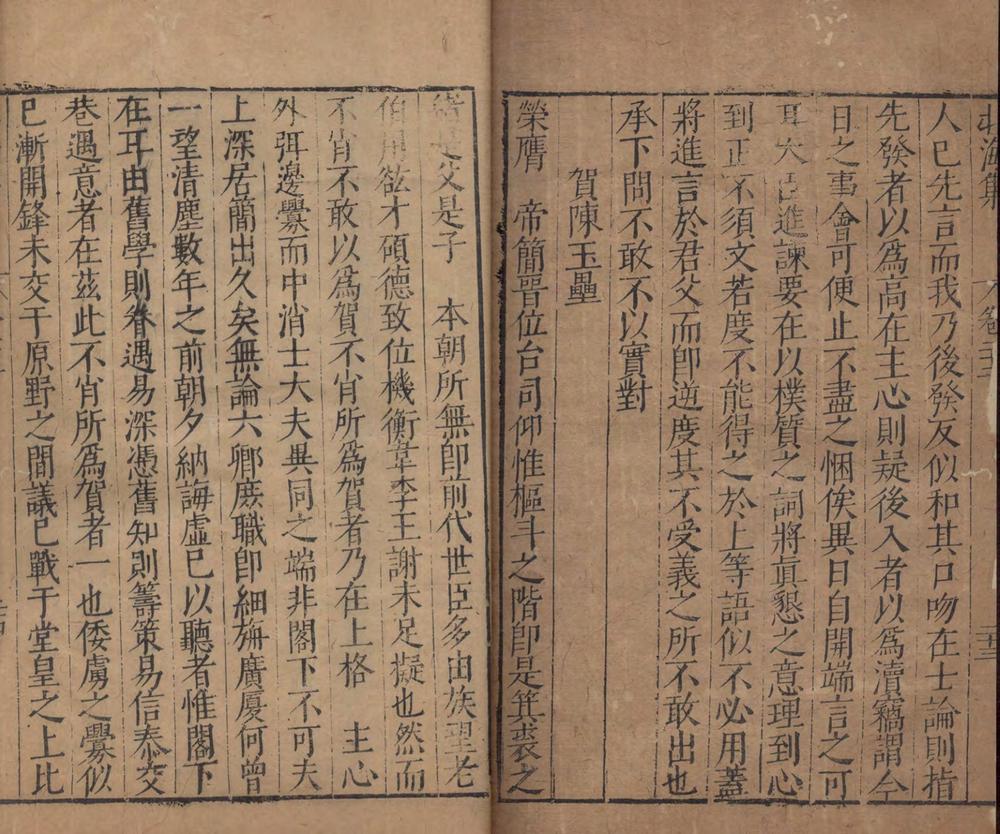 人已先言而我乃後發友似和其口吻在士論則指
先發者以爲高在主心則疑後入者以爲瀆竊謂今
日之事會可便止不盡之悃俟異日自開端言之可
耳大進諫要在以樸質之詞將眞懇之意理到心
到正不須文若度不能得之於上等語似不必用蓋
將進言於君父而卽逆度其不受義之所不敢出也
承下問不敢不以實對
賀陳玉壘
榮膺 帝簡晉位台司仰惟樞斗之階卽是箕裘之
父是子 本朝所無卽前代世臣多由族望老
伯用欲才碩德致位機衡韋李王謝未足擬也然而
不肖不敢以爲賀不肖所爲賀者乃在上格 主心
外弭邊釁而中消士大夫異同之端非閣下不可夫
上深居簡出久矣無論六卿庶職卽細旃廣廈何曾
一望清塵數年之前朝夕納誨虛已以聽者惟閣下
在耳由舊學則眷遇易深憑舊知則籌策易信泰交
巷遇意者在茲此不肖所爲賀者一也倭虜之釁似
已漸開鋒未交于原野之間議已戰于堂皇之上比